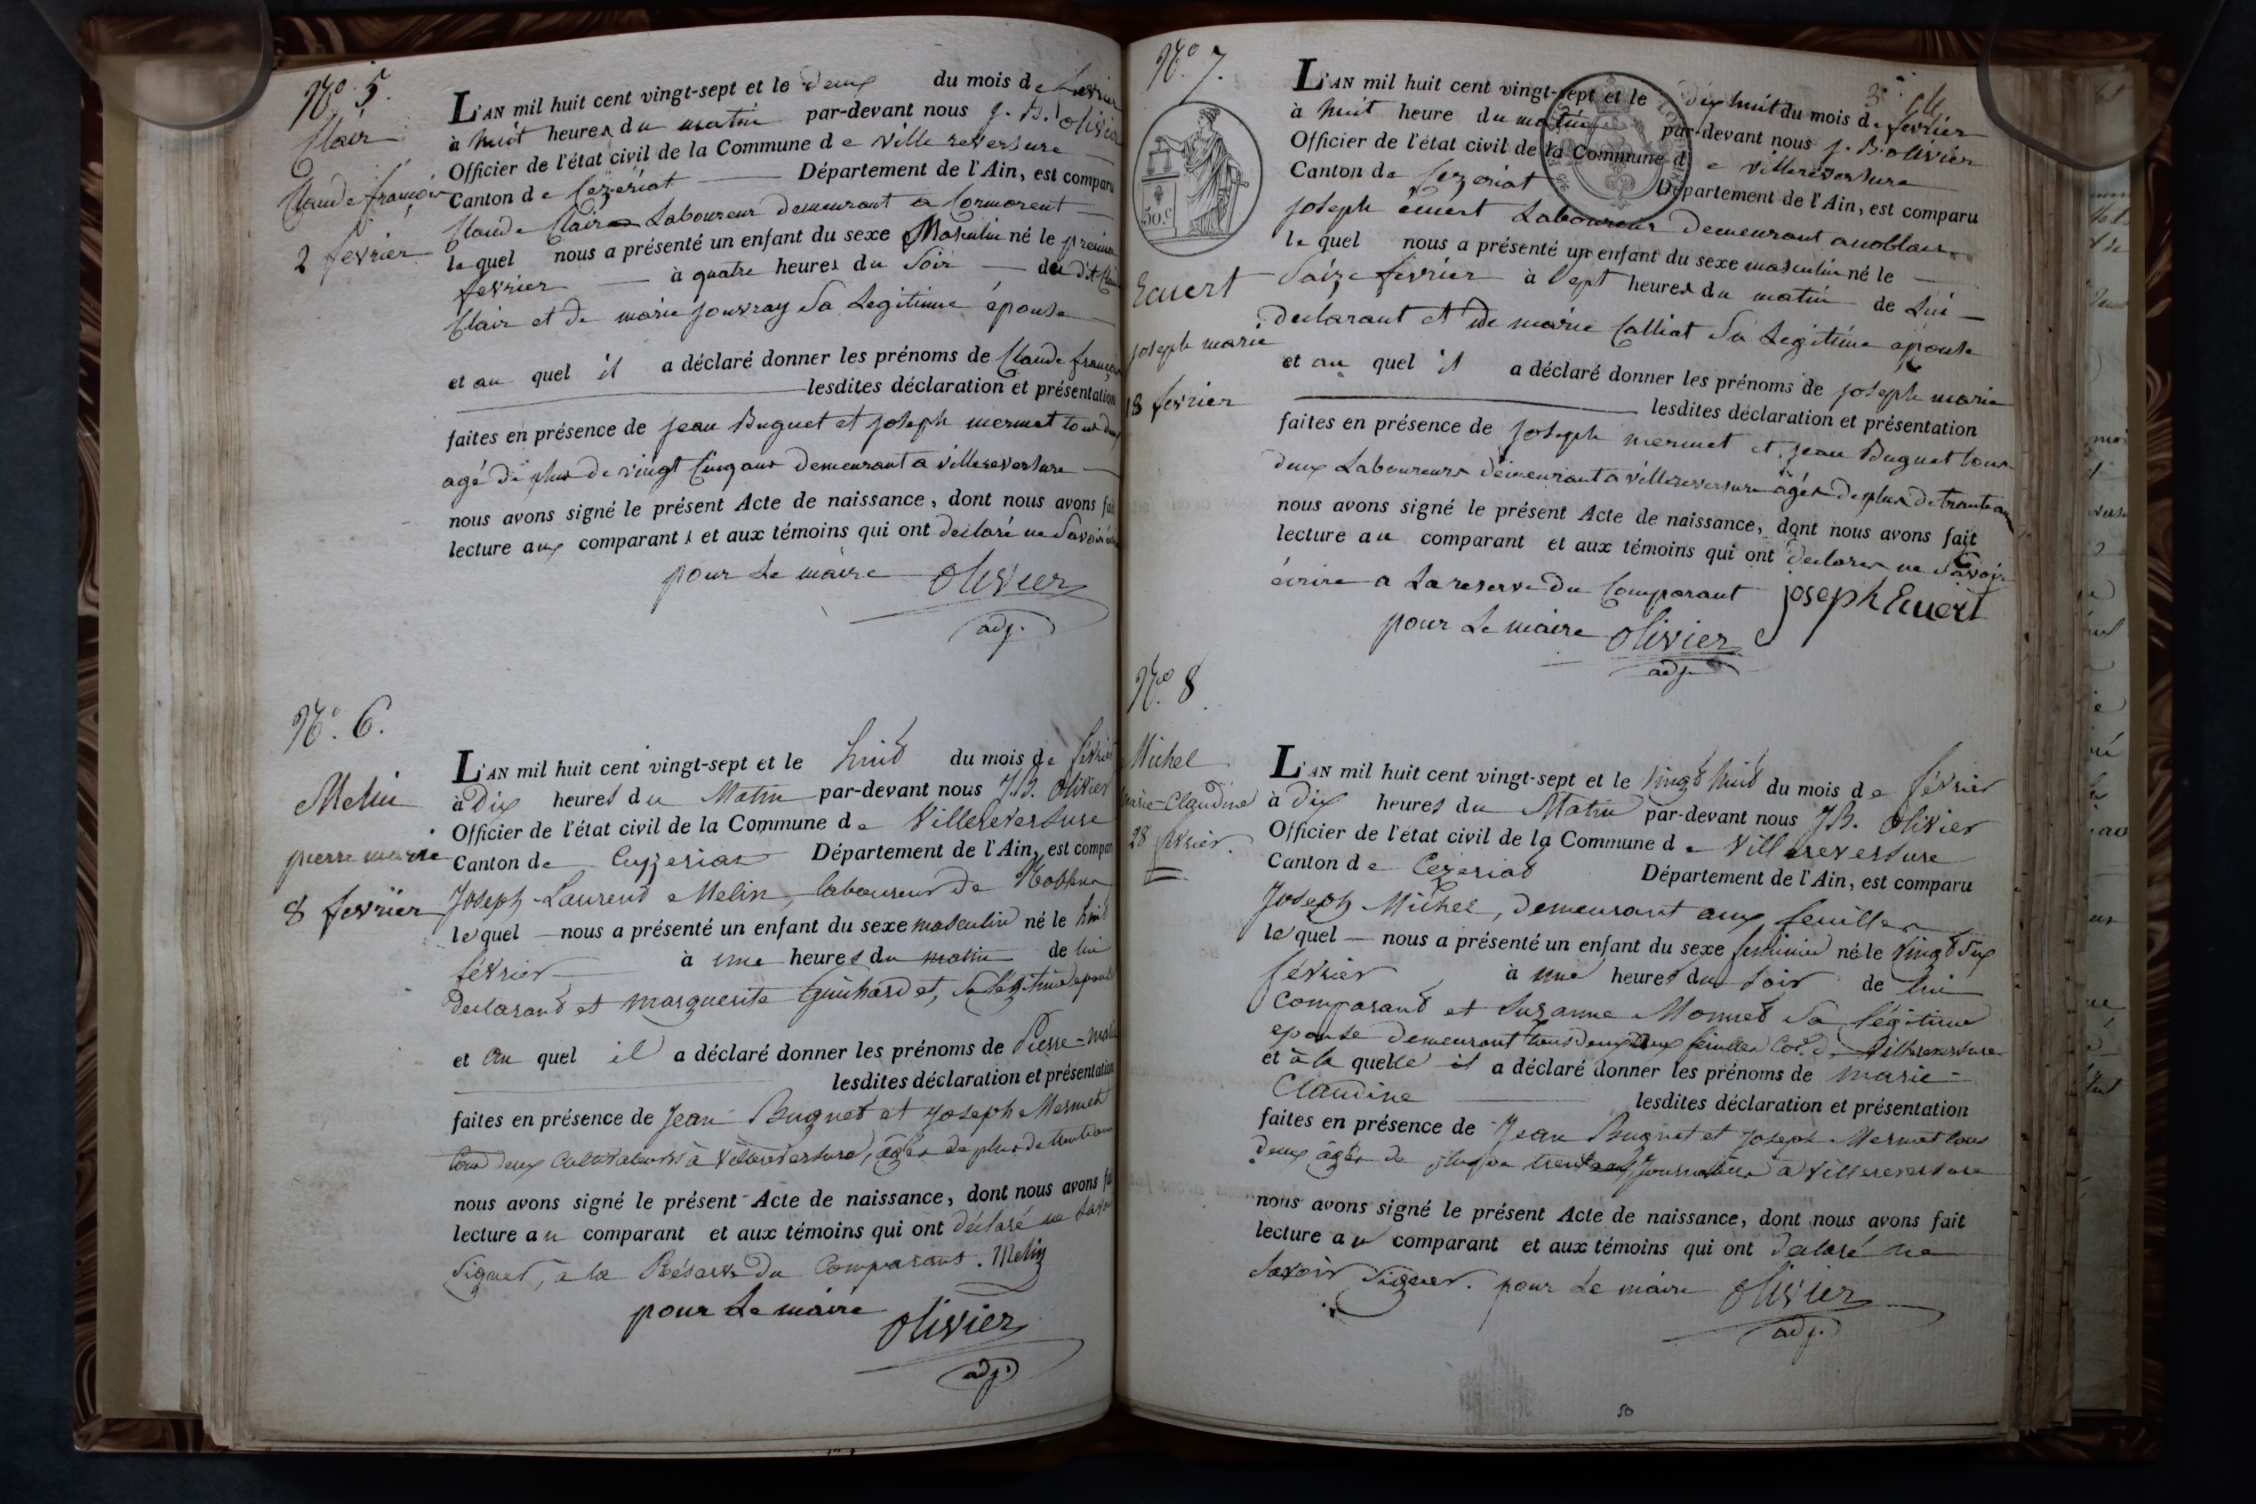 N.º 5.
Clair
Claude françois
2 fevrier
L'AN mil huit cent vingt-sept et le deux du mois de fevrier
à huit heures du matin par-devant nous J. B. Olivier
Officier de l'état civil de la Commune de villereversure
Canton de Cezeriat Département de l'Ain, est comparu
Claude Clair Laboureur demeurant a Cormorent
le quel nous a présenté un enfant du sexe Masculin né le premier
fevrier à quatre heures du Soir du dit
Clair et de marie Jouvray Sa Legitime épouse
et au quel il a déclaré donner les prénoms de Claude françois
lesdites déclaration et présentation
faites en présence de jean Buguet et joseph mermet tous deux
agé de plus de vingt cinq ans demeurant a villereversure
nous avons signé le présent Acte de naissance, dont nous avons fait
lecture aux comparants et aux témoins qui ont declaré ne Savoir
pour Le maire Olivier
adj.
N.º 6.
Melin
pierre marie
8 fevrier
L'AN mil huit cent vingt-sept et le huit du mois de février
à Dix heures du Matin par-devant nous J.B. Olivier
Officier de l'état civil de la Commune de Villereversure
Canton de Ceyzeriat Département de l'Ain, est comparu
Joseph-Laurent Melin, laboureur de Noblens
le quel nous a présenté un enfant du sexe masculin né le huit
février à une heures du matin de lui
declarant et marguerite Guichardet, Sa légitime epouse
et au quel il a déclaré donner les prénoms de Pierre-marie
lesdites déclaration et présentation
faites en présence de Jean Buguet et Joseph Mermet
tous deux Cultivateurs à Villereversure, agés de plus de trente ans
nous avons signé le présent Acte de naissance, dont nous avons fait
lecture au comparant et aux témoins qui ont déclaré ne Savoir
Signer, a la Réserve du Comparant. Melin
pour Le maire
Olivier
adj.
N.º 7.
30.c
Ecuert
joseph marie
18 fevrier
L'AN mil huit cent vingt-sept et le dix huit du mois de fevrier
à huit heure du matin par-devant nous J. B. olivier
Officier de l'état civil de la Commune de villereversure
Canton de Cezeriat Département de l'Ain, est comparu
joseph ecuert Laboureur Demeurant a noblens
le quel nous a présenté un enfant du sexe masculin né le
Saize fevrier à Sept heures du matin de Lui
declarant et de marie Calliat Sa Legitime épouse
et au quel il a déclaré donner les prénoms de joseph marie
lesdites déclaration et présentation
faites en présence de joseph mermet et jean Buguet tous
deux Laboureurs demeurant a villereversure agés de plus de trante ans
nous avons signé le présent Acte de naissance, dont nous avons fait
lecture au comparant et aux témoins qui ont declarer ne Savoir
écrire a La reserve du Comparant joseph Ecuert
pour Le maire Olivier
adj.
N.º 8.
Michel
marie-Claudine
28 février.
L'AN mil huit cent vingt-sept et le vingt huit du mois de février
à Dix heures du Matin par-devant nous J.B. Olivier
Officier de l'état civil de la Commune de Villereversure
Canton de Cezeriat Département de l'Ain, est comparu
Joseph Michel, demeurant aux feuilles
le quel nous a présenté un enfant du sexe feminin né le vingt Six
février à une heures du Soir de lui
Comparant et Suzanne Monnet Sa légitime
epouse demeurant tous deux aux feuilles Co.e de Villereversure
et à la quelle il a déclaré donner les prénoms de marie-
Claudine lesdites déclaration et présentation
faites en présence de Jean Buguet et Joseph Mermet tous
deux agés de plus de trente ans, journaliers a Villereversure
nous avons signé le présent Acte de naissance, dont nous avons fait
lecture au comparant et aux témoins qui ont declaré ne
Savoir Signer. pour Le maire Olivier
adj.
50